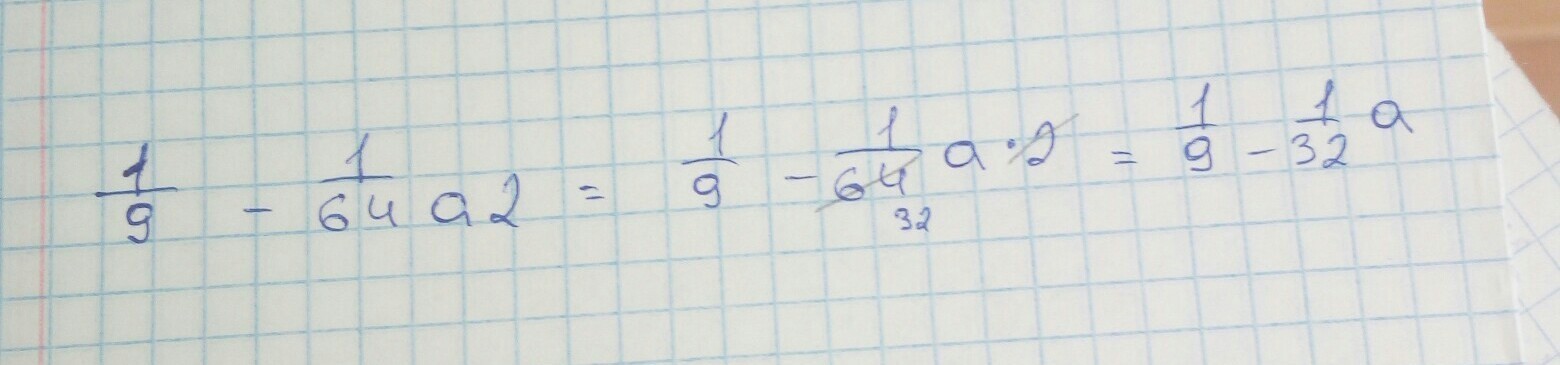 1/9 - 1/64 a2 = 1/9 - 1/64 a · 2 = 1/9 - 1/32 a
32